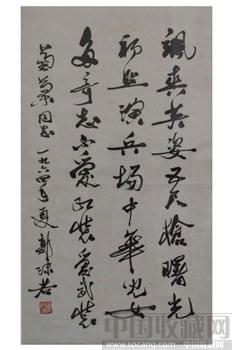 颯爽英姿五尺槍曙光
初照演兵場中華兒女
多奇志不愛紅裝愛武裝
菊同志一九六四年夏郭沫若
中国收藏网
www.socang.com